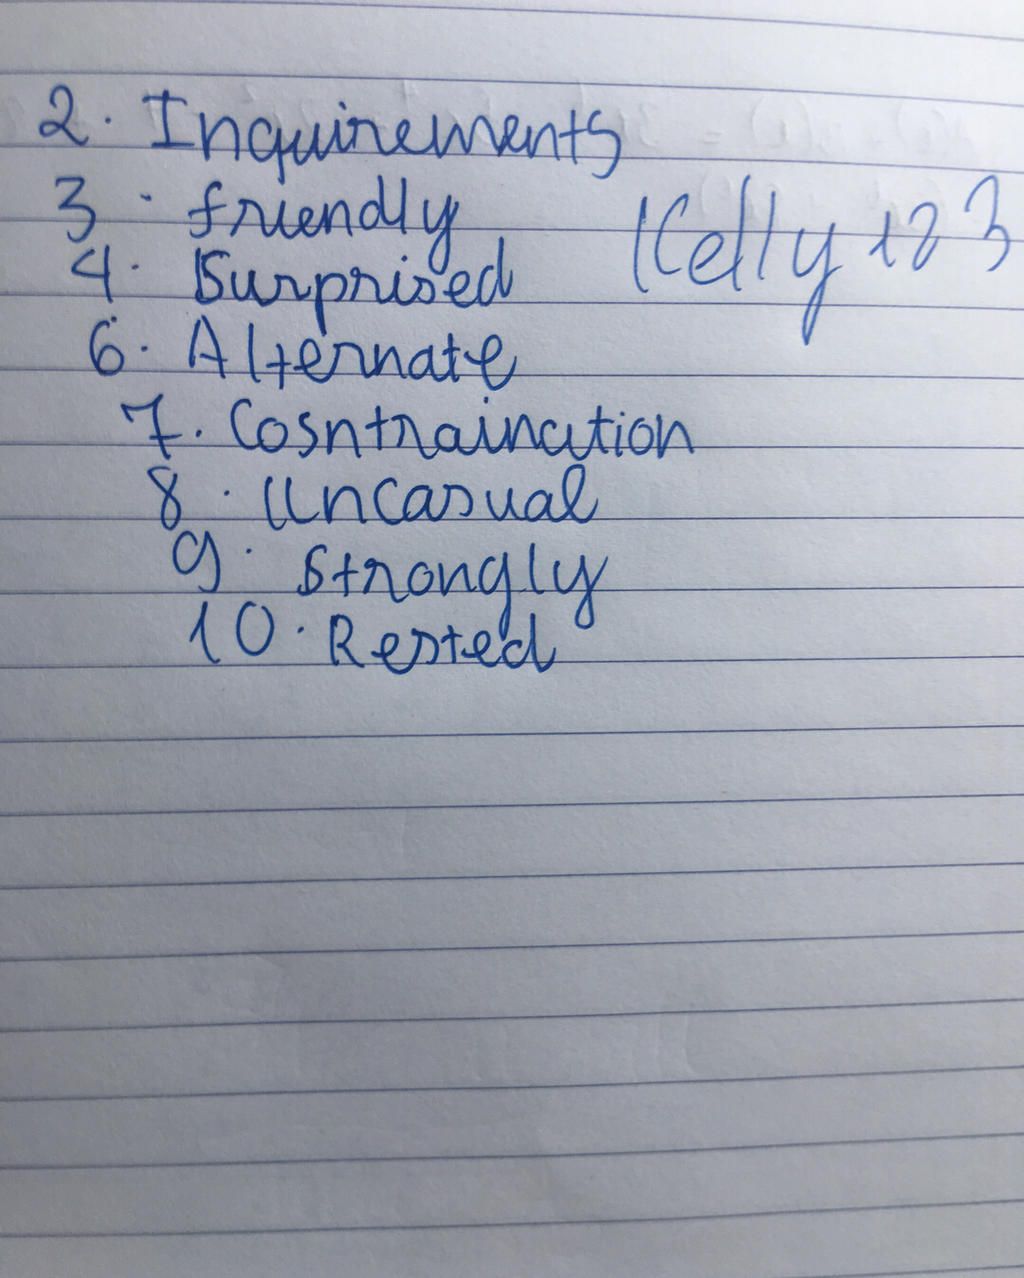 2. Inquirements
3. friendly
Kelly 123
4. Surprised
6. Alternate
7. Cosntraination
8. Uncasual
9. Strongly
10. Rested